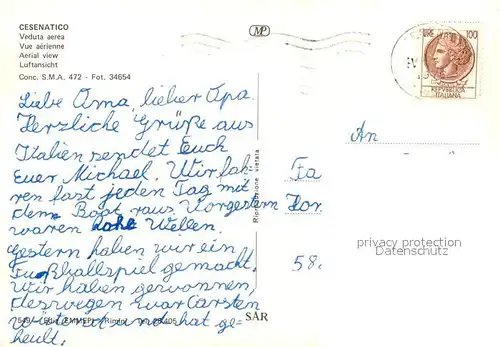 CESENATICO
Veduta aerea
Vue aérienne
Aerial view
Luftansicht
Conc. S.M.A. 472 - Fot. 34654
MP
LIRE 100
REPVBBLICA
ITALIANA
Liebe Oma, lieber Opa.
Herzliche Grüße aus
Italien sendet Euch
Euer Michael. Wir fah-
ren fast jeden Tag mit
dem Boot raus. Vorgestern
waren hohe Wellen.
Gestern haben wir ein
Fußballspiel gemacht.
Wir haben gewonnen,
deswegen war Carsten
wütend und hat ge-
heult.
Riproduzione vietata
An
Fa
Hor
58.
privacy protection
Datenschutz
SAR